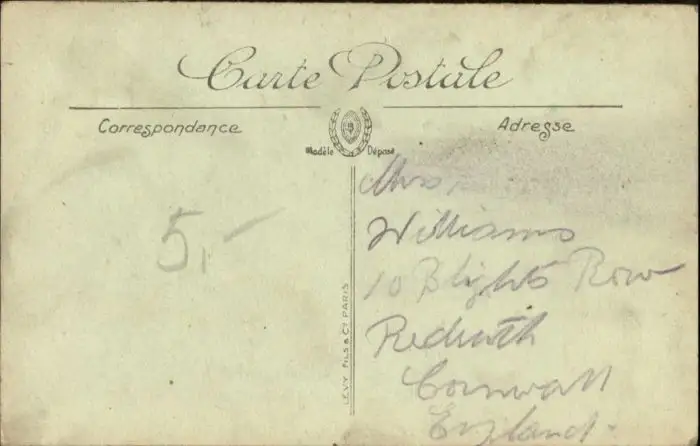 Carte Postale
Correspondance
Adresse
Modèle Déposé
5,-
LÉVY FILS & Cie PARIS
Mrs,
Williams
10 Blights Row
Redruth
Cornwall
England.